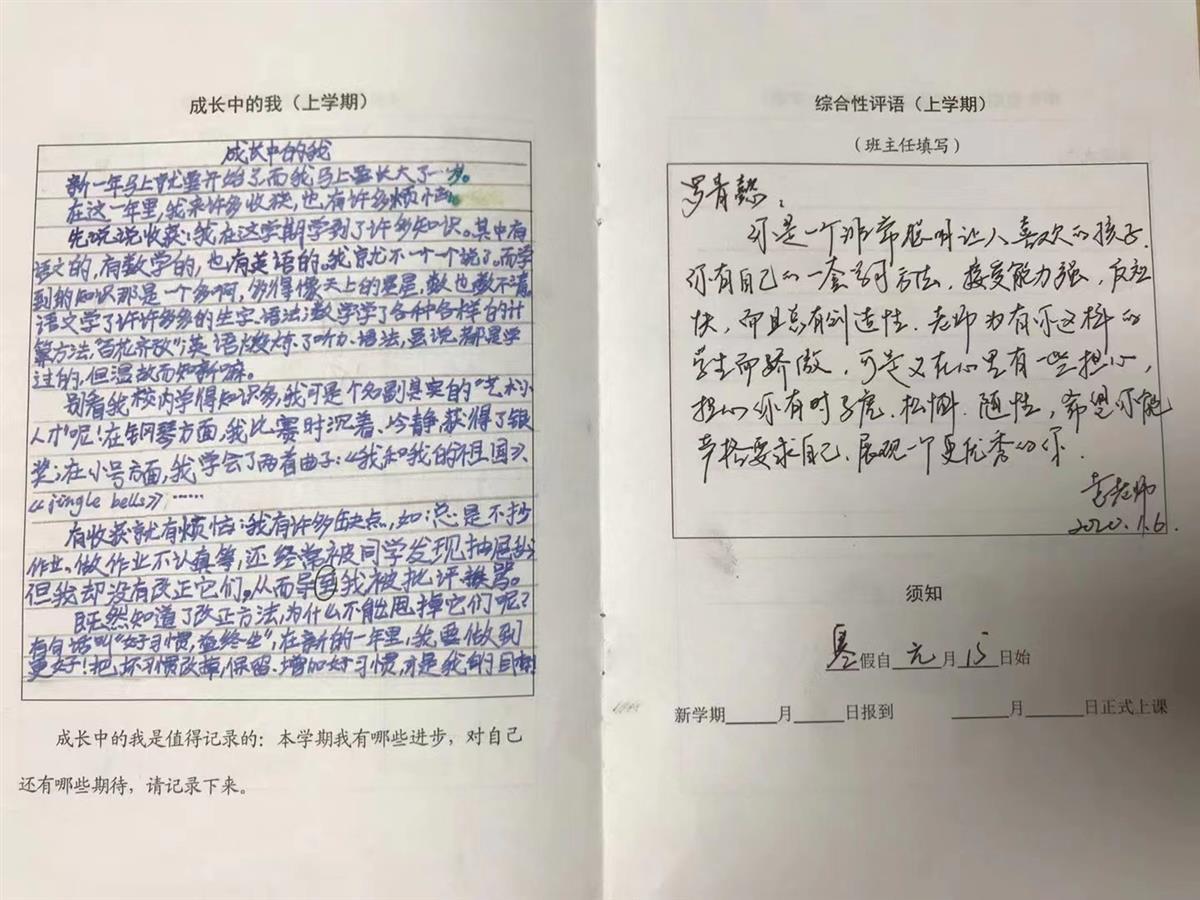 成长中的我（上学期）
成长中的我
新一年马上就要开始了,而我马上要长大了一岁。
在这一年里,我来许多收获,也有许多烦恼。
先说说收获:我在这学期学到了许多知识。其中有
语文的,有数学的,也有英语的。我就不一个一个说了。而学
到的知识那是一个多啊,多得像天上的星星,数也数不清。
语文学了许许多多的生字、语法;数学学了各种各样的计
算方法,"百花齐放";英语 了听力、语法,虽说都是学
过的,但温故而知新嘛。
别看我校内学得知识多,我可是个名副其实的"艺术小
人才"呢!在钢琴方面,我比赛时沉着、冷静,获得了银
奖;在小号方面,我学会了两首曲子:《我和我的祖国》、
《jingle bells》……
有收获就有烦恼:我有许多缺点,如:总是不抄
作业、做作业不认真等,还经常被同学发现抽屉乱,
但我却没有改正它们。从而导致我被批评、挨骂。
既然知道了改正方法,为什么不能甩掉它们呢?
有句话叫"好习惯,益终生",在新的一年里,我要做到
更好!把坏习惯改掉,保留、增加好习惯,才是我的目标!
成长中的我是值得记录的：本学期我有哪些进步，对自己
还有哪些期待，请记录下来。
综合性评语（上学期）
（班主任填写）
罗青懿：
你是一个非常聪明让人喜欢的孩子.
你有自己的一套学习方法，接受能力强，反应
快，而且总有创造性.老师为有你这样的
学生而骄傲，可是又在心里有一些担心，
担心你有时 松懈.随性，希望你能
严格要求自己、展现一个更优秀的你.
李老师
2020.1.6.
须知
寒假自元月15日始
新学期____月____日报到 ____月____日正式上课